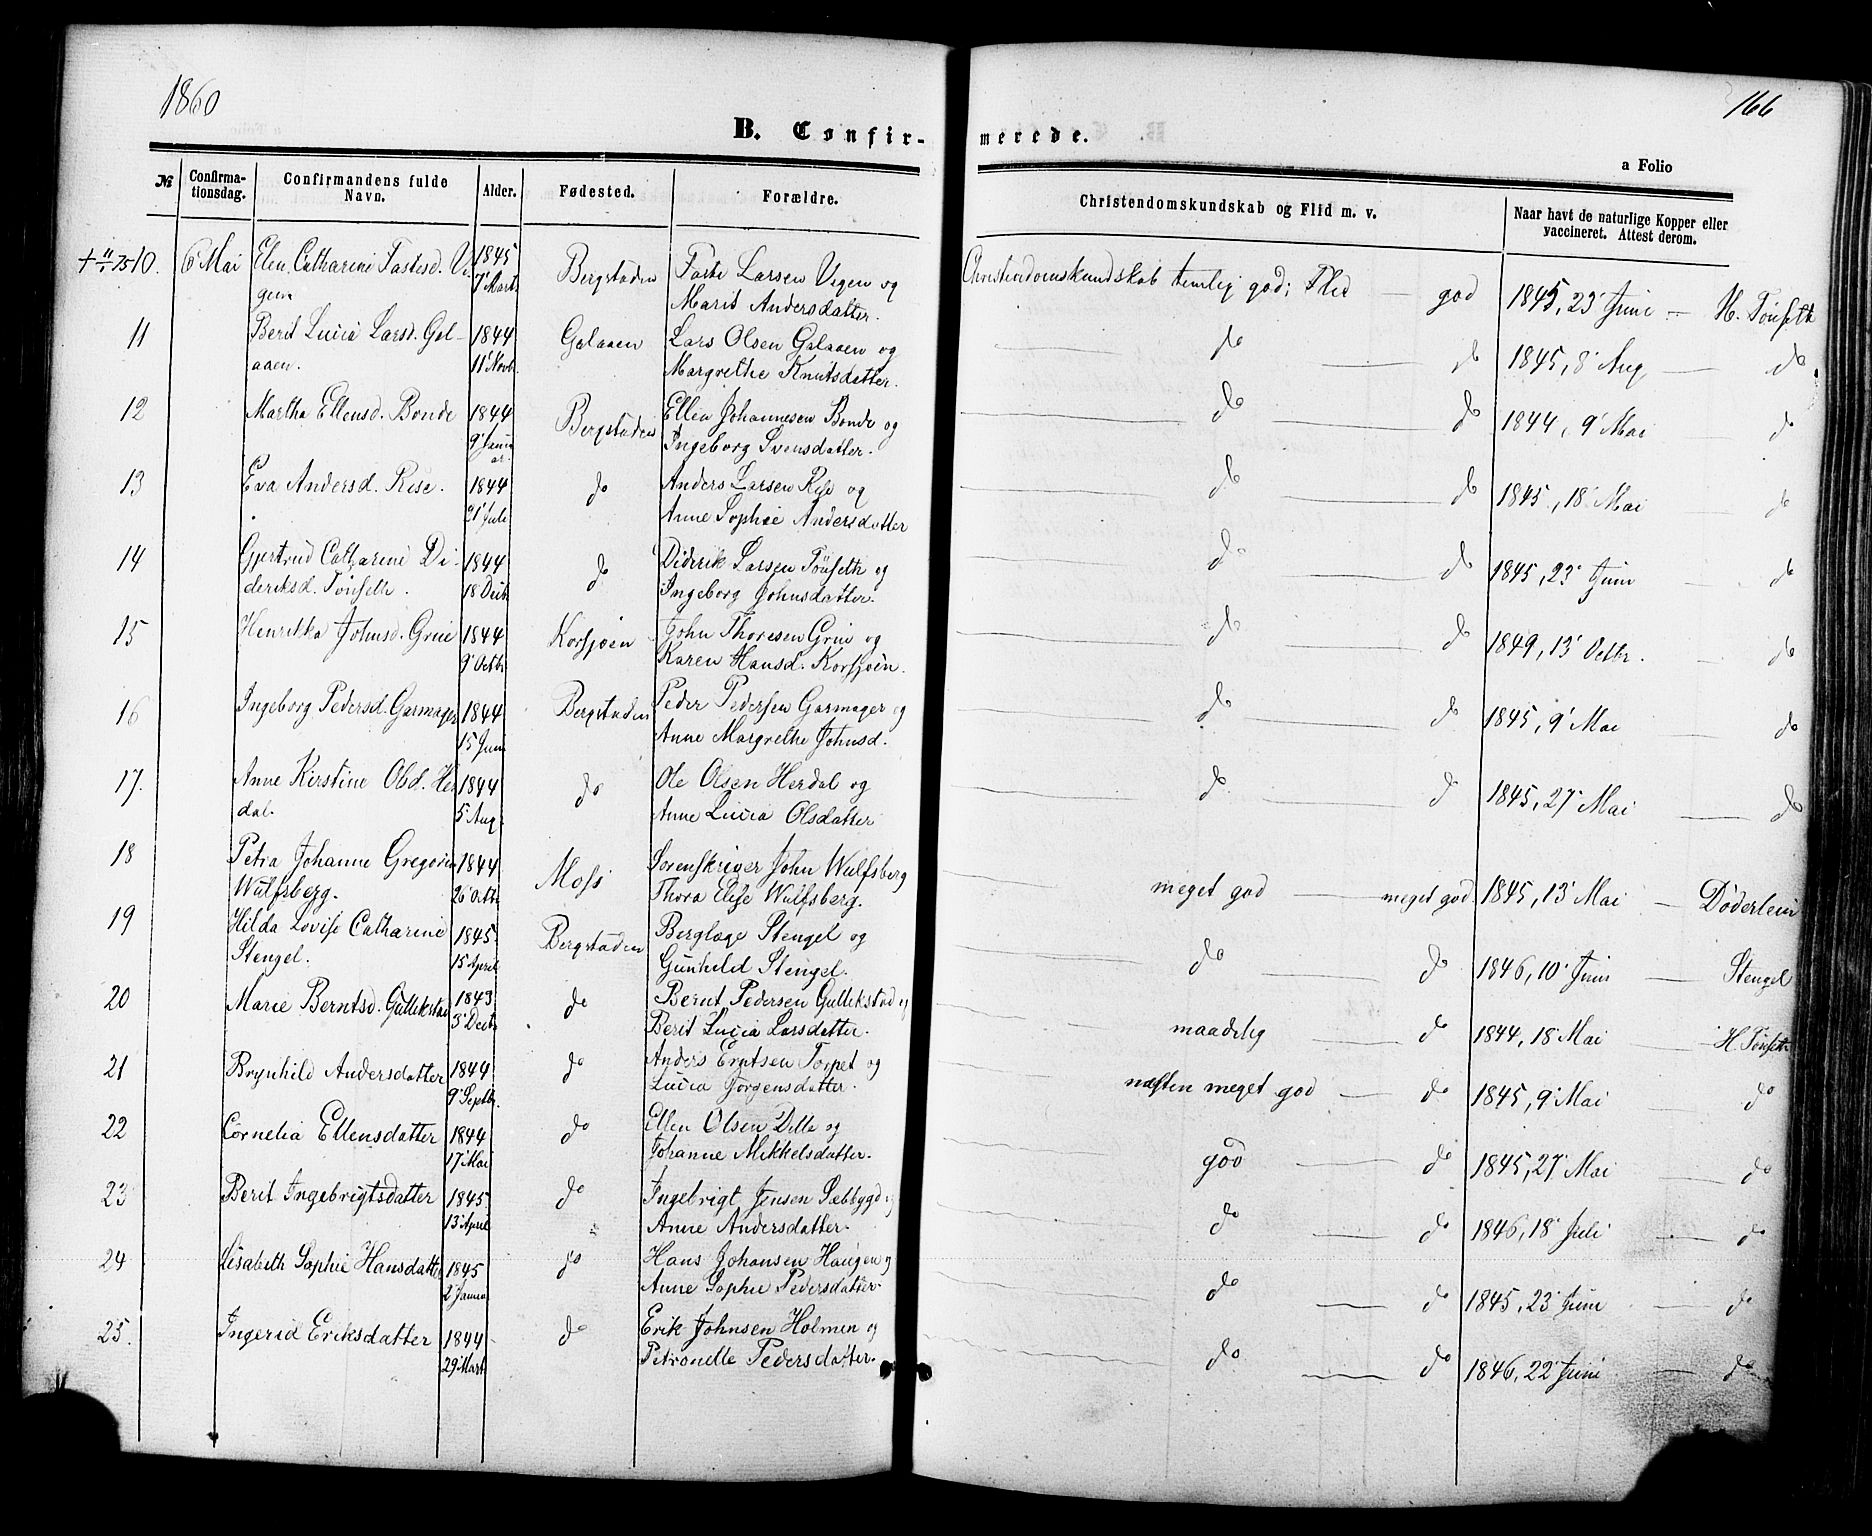 1860
166
B. Confir-
merede.
a Folio
№
Confirma-
tionsdag.
Confirmandens fulde
Navn.
Alder.
Fødested.
Forældre.
Christendomskundskab og Flid m. v.
Naar havt de naturlige Kopper eller
vaccineret. Attest derom.
10. 6 Mai Elen Catharine Fastesd. Vi- 1845 Bergstaden Faste Larsen Vigen og Christendomskundskab temlig god; Flid — god 1845, 23' Juni — H. Tönseth
gen 7' Marts Marit Andersdatter.
11 Berit Lucia Larsd. Gal- 1844 Galaaen Lars Olsen Galaaen og do do 1845, 8' Aug — do
aaen. 11' Novb. Margrethe Knutsdatter.
12 Martha Ellensd. Bonde 1844 Bergstaden Ellen Johannesen Bonde og do do 1844, 9' Mai — do
9' Janu
ar. Ingeborg Svensdatter.
13 Eva Andersd. Rise. 1844 do Anders Larsen Rise og do do 1845, 18' Mai — do
21' Juli Anne Sophie Andersdatter
14 Gjertrud Catharine Di- 1844 do Diderik Larsen Tönseth og do do 1845, 23' Juni — do
deriksd. Tönseth. 18 Decb Ingeborg Johnsdatter.
15 Henrikka Johnsd. Grue 1844 Korssjoen John Thoresen Grue og do do 1849, 13' Octbr. — do
9' Octbr Karen Hansd. Korssjoen.
16 Ingeborg Pedersd. Garmager 1844 Bergstaden Peder Pedersen Garmager og do do 1845, 9' Mai — do
15 Juni Anne Margrethe Johnsd.
17. Anne Kirstine Olsd. Her 1844 do Ole Olsen Herdal og do do 1845, 27' Mai — do
dal. 5 Aug. Anne Lucia Olsdatter
18 Petra Johanne Gregorine 1844 Moss Sorenskriver John Wulfsberg meget god — meget god 1845, 13' Mai — Döderlein
Wulfsberg. 26' Octbr Thora Elise Wulfsberg.
19 Hilda Lovise Catharine 1845. Bergstaden Berglæge Stengel og do do 1846, 10' Juni — Stengel
Stengel. 15 April Gunhild Stengel.
20 Marie Berntsd. Gullikstad 1843 do Bernt Pedersen Gullikstad og maadelig — do 1844, 18' Mai — H. Tönseth
Decbr Berit Lucia Larsdatter.
21 Brynhild Andersdatter 1844 do Anders Erntsen Torpet og næsten meget god — do 1845, 9' Mai — do
9' Septbr. Lucia Jörgensdatter.
22 Cornelia Ellensdatter 1844 do Ellen Olsen Dille og god — do 1845, 27' Mai — do
17' Mai Johanne Mikkelsdatter.
23 Berit Ingebrigtsdatter 1845. do Ingebrigt Jensen Sæbbygd og do do 1846, 18' Juli — do
13' April Anne Andersdatter.
24 Lisabeth Sophie Hansdatter 1845 do Hans Johansen Haugen og do do 1845, 23' Juni — do
2' Janua Anne Sophie Pedersdatter.
25. Ingerid Eriksdatter 1844 do Erik Johnsen Holmen og do do 1846, 22' Juni — do
29' Mart Petronelle Pedersdatter.